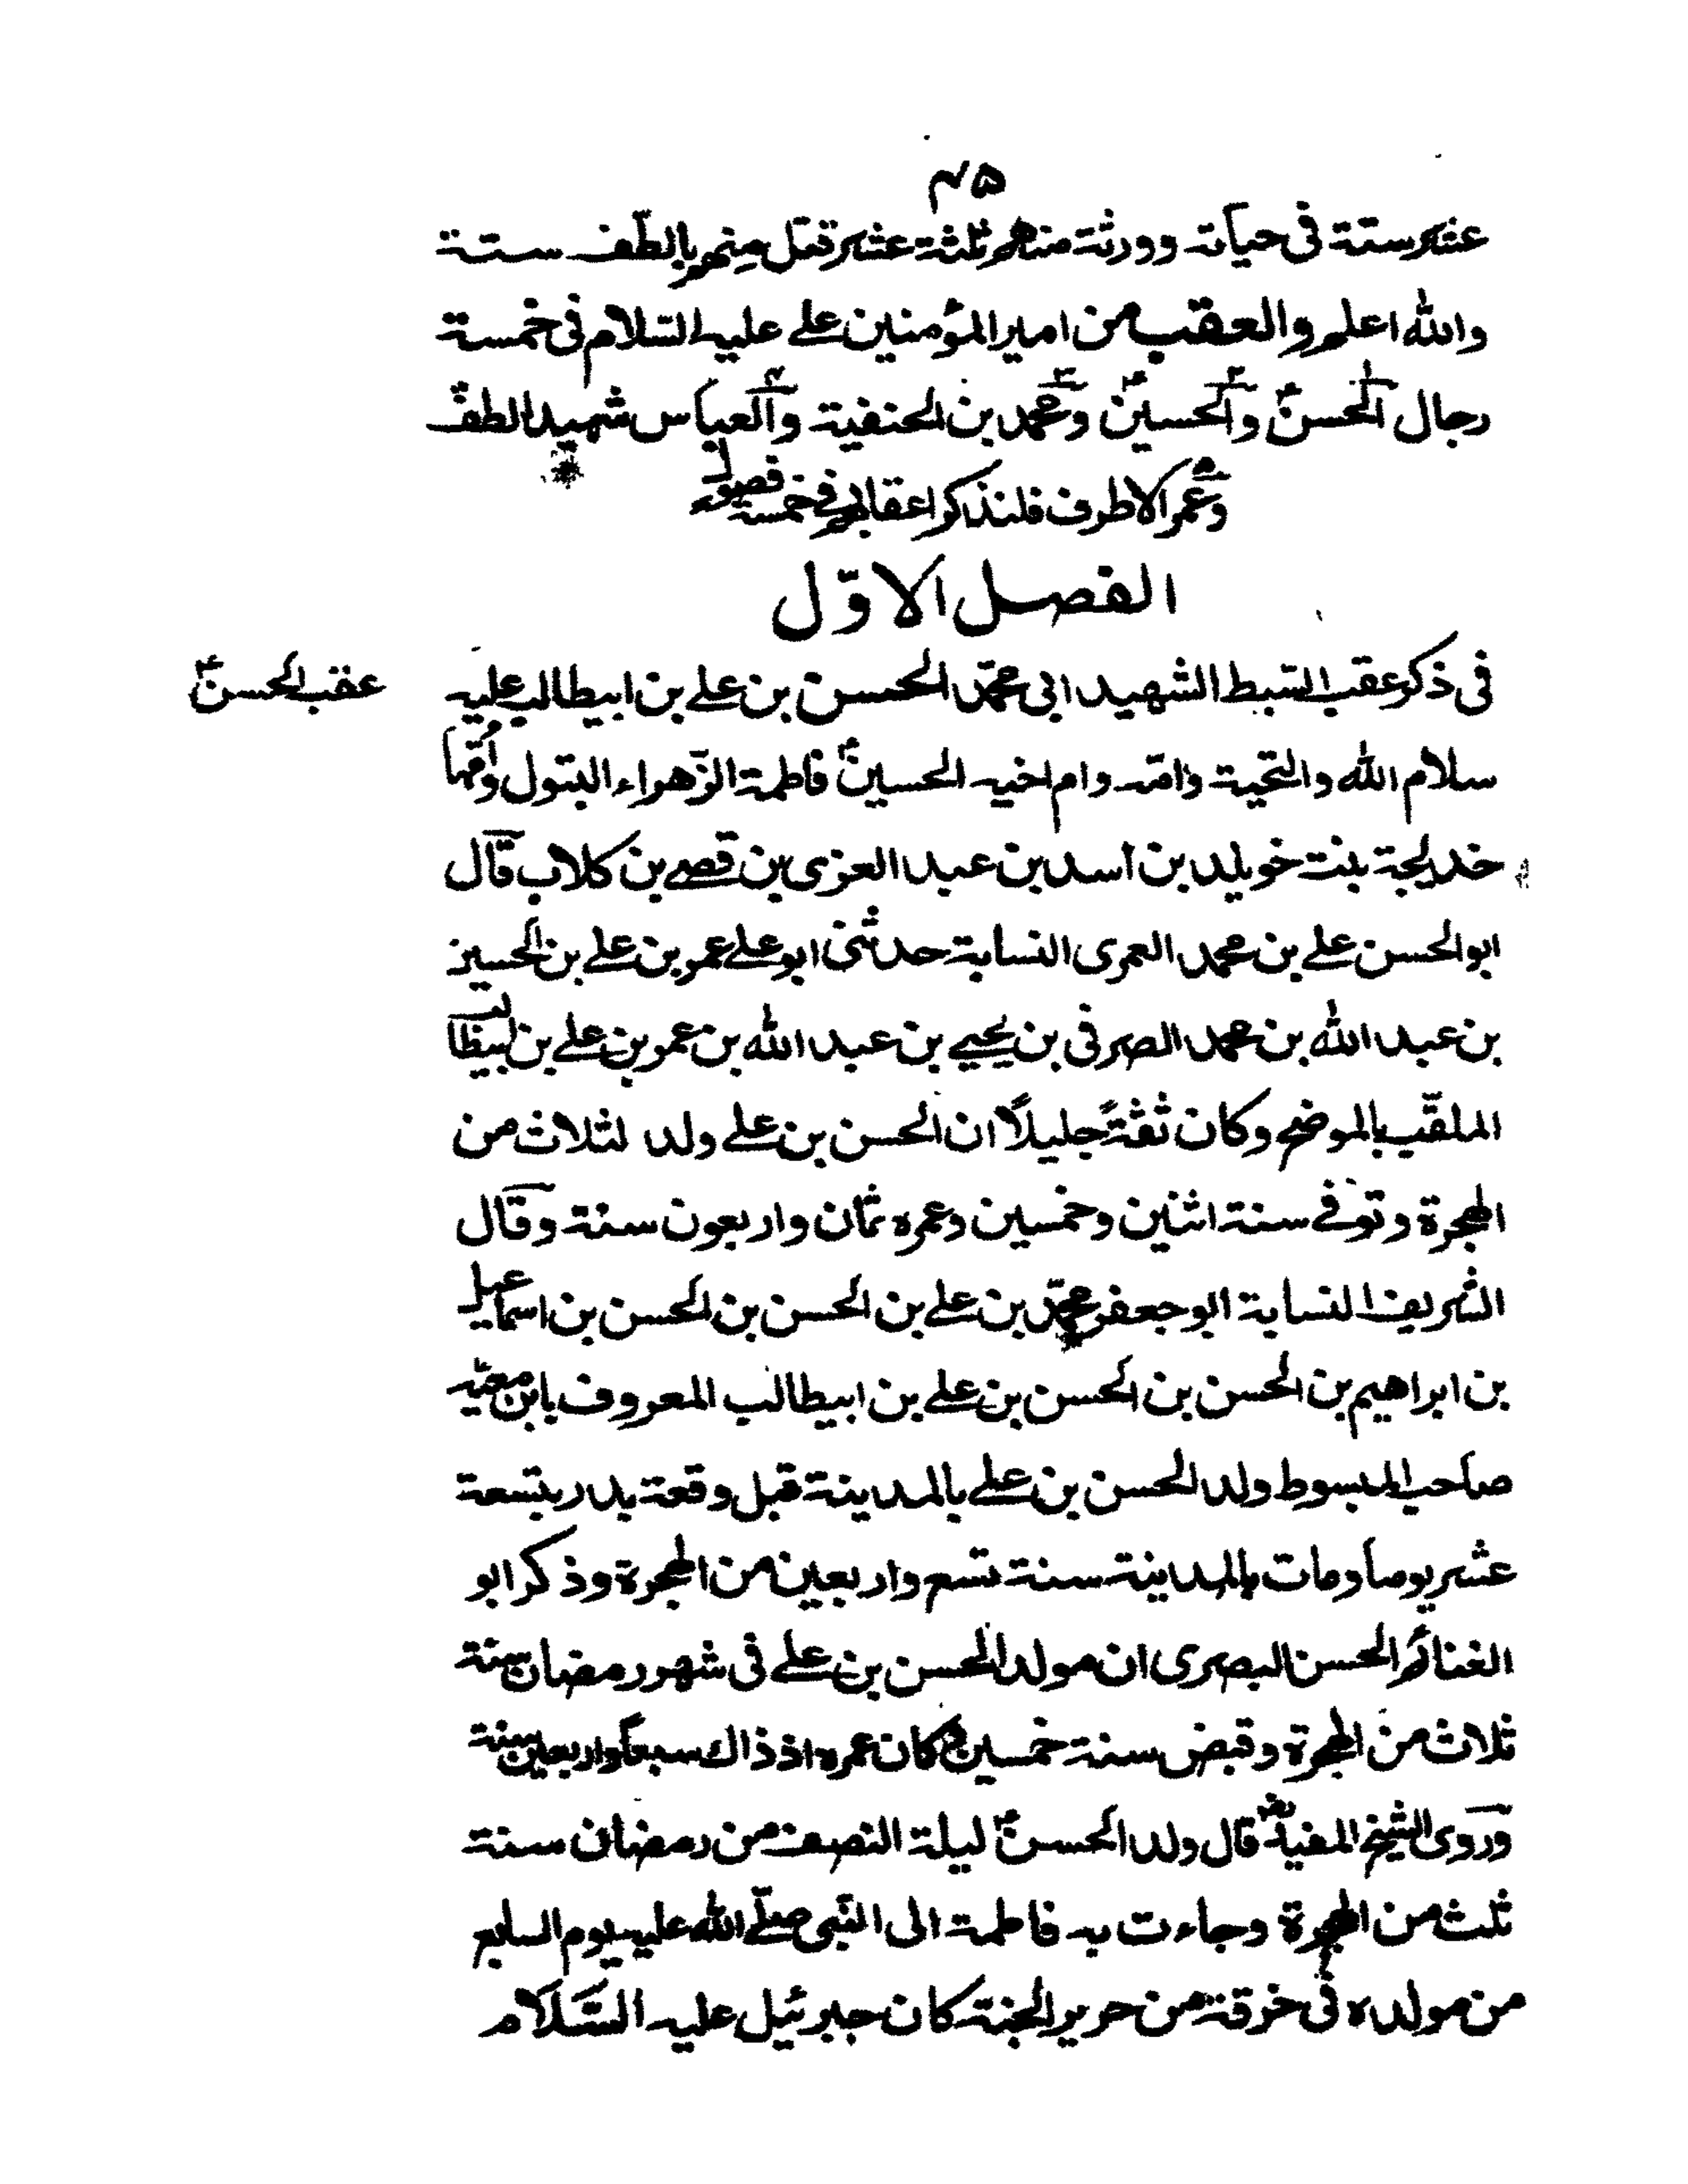 ٤٥
عشر ستة فى حياته وورثه منهم ثلثة عشر قتل منهم بالطّف ستة
والله اعلم والعقب من امير المؤمنين على عليه السّلام فى خمسة
رجال الحسن ع والحسين ع ومحمد بن الحنفية والعباس شهيد الطفّ
وعمر الاطرف فلنذكر اعقابهم فى خمسة فصول
الفصل الاوّل
فى ذكر عقب السّبط الشهيد ابى محمّد الحسن بن على بن ابيطالب عليه
عقب الحسن ع
سلام الله والتحية وامّه وام اخيه الحسين ع فاطمة الزّهراء البتول وأمّها
خديجة بنت خويلد بن اسد بن عبد العزى بن قصى بن كلاب قال
ابو الحسن على بن محمد العمرى النسابة حدثنى ابو على عمر بن على بن الحسين
بن عبد الله بن محمد الصرفى بن يحيى بن عبد الله بن عمر بن على بن ابيطالب
الملقّب بالموضح وكان ثقةً جليلاً ان الحسن بن على ولد لثلاث من
الهجرة وتوفى سنة اثنين وخمسين وعمره ثمان واربعون سنة وقال
الشريف النسابة ابو جعفر محمّد بن على بن الحسن بن الحسن بن اسماعيل
بن ابراهيم بن الحسن بن الحسن بن على بن ابيطالب المعروف بابن معيّه
صاحب المبسوط ولد الحسن بن على بالمدينة قبل وقعة بدر بتسعة
عشر يوما ومات بالمدينة سنة تسع واربعين من الهجرة وذكر ابو
الغنائم الحسن البصرى ان مولد الحسن بن على فى شهر رمضان سنة
ثلاث من الهجرة وقبض سنة خمسين وكان عمره اذ ذاك سبعاً واربعين سنة
وروى الشيخ المفيد ره قال ولد الحسن ع ليلة النصف من رمضان سنة
ثلث من الهجرة وجاءت به فاطمة الى النّبى صلّى الله عليه يوم السابع
من مولده فى خرقة من حرير الجنة كان جبرئيل عليه السّلام